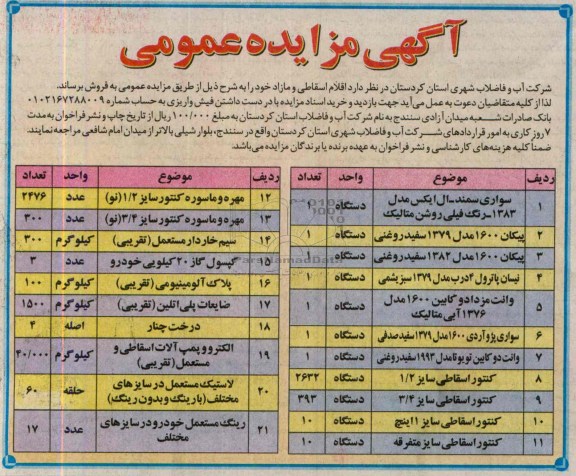 آگهی مزایده عمومی
شرکت آب و فاضلاب شهری استان کردستان در نظر دارد اقلام اسقاطی و مازاد خود را به شرح ذیل از طریق مزایده عمومی به فروش برساند.
لذا از کلیه متقاضیان دعوت به عمل می آید جهت بازدید و خرید اسناد مزایده با در دست داشتن فیش واریزی به حساب شماره ۰۱۰۲۱۶۷۲۸۸۰۰۹
بانک صادرات شعبه میدان آزادی سنندج به نام شرکت آب و فاضلاب استان کردستان به مبلغ ۱۰۰/۰۰۰ ریال از تاریخ چاپ و نشر فراخوان به مدت
۷ روز کاری به امور قراردادهای شرکت آب و فاضلاب شهری استان کردستان واقع در سنندج، بلوار شبلی بالاتر از میدان امام شافعی مراجعه نمایند.
ضمناً کلیه هزینه‌های کارشناسی و نشر فراخوان به عهده برنده یا برندگان مزایده می‌باشد.
ردیف موضوع واحد تعداد
۱ سواری سمند-ال ایکس مدل ۱۳۸۳-رنگ فیلی روشن متالیک دستگاه ۱
۲ پیکان ۱۶۰۰ مدل ۱۳۷۹ سفید روغنی دستگاه ۱
۳ پیکان ۱۶۰۰ مدل ۱۳۸۲ سفید روغنی دستگاه ۱
۴ نیسان پاترول ۴ درب مدل ۱۳۷۹ سبز یشمی دستگاه ۱
۵ وانت مزدا دو کابین ۱۶۰۰ مدل ۱۳۷۶ آبی متالیک دستگاه ۱
۶ سواری پژو آردی ۱۶۰۰ مدل ۱۳۷۹ سفید صدفی دستگاه ۱
۷ وانت دو کابین تویوتا مدل ۱۹۹۳ سفید روغنی دستگاه ۱
۸ کنتور اسقاطی سایز ۱/۲ دستگاه ۲۶۳۲
۹ کنتور اسقاطی سایز ۳/۴ دستگاه ۳۹۳
۱۰ کنتور اسقاطی سایز ۱ اینچ دستگاه ۱۰
۱۱ کنتور اسقاطی سایز متفرقه دستگاه ۱۰
ردیف موضوع واحد تعداد
۱۲ مهره و ماسوره کنتور سایز ۱/۲ (نو) عدد ۲۴۷۶
۱۳ مهره و ماسوره کنتور سایز ۳/۴ (نو) عدد ۳۰۰
۱۴ سیم خاردار مستعمل (تقریبی) کیلوگرم ۳۰۰
۱۵ کپسول گاز ۲۰ کیلویی خودرو عدد ۳
۱۶ پلاک آلومینیومی (تقریبی) کیلوگرم ۱۰۰
۱۷ ضایعات پلی اتلین (تقریبی) کیلوگرم ۱۵۰۰
۱۸ درخت چنار اصله ۴
۱۹ الکترو و پمپ آلات اسقاطی و مستعمل (تقریبی) کیلوگرم ۴۰/۰۰۰
۲۰ لاستیک مستعمل در سایزهای مختلف (با رینگ و بدون رینگ) حلقه ۶۰
۲۱ رینگ مستعمل خودرو در سایزهای مختلف عدد ۱۷